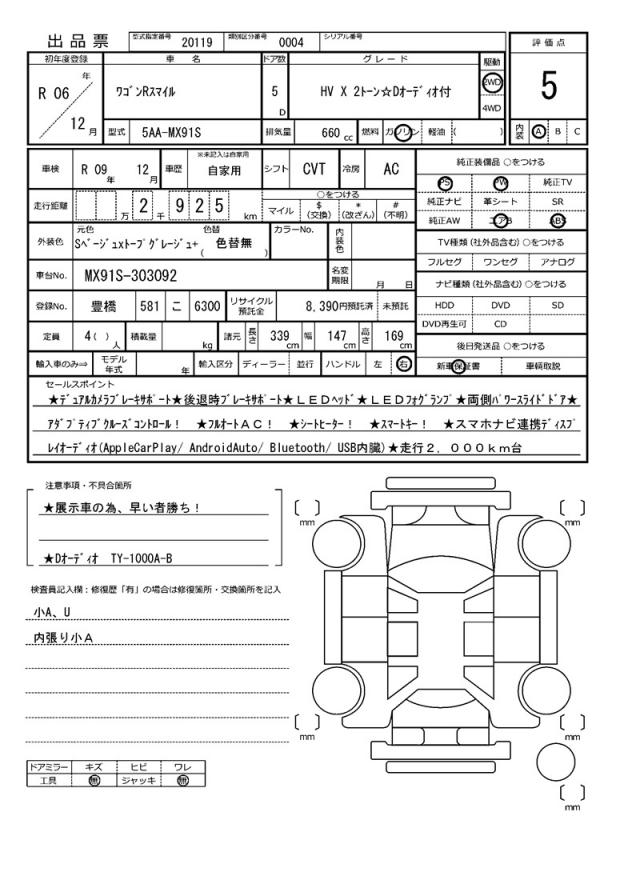 出品票 型式指定番号 20119 類別区分番号 0004 シリアル番号
評価点
初年度登録 車名 ドア数 グレード 駆動
R 06 年 12 月
ワゴンRスマイル 5 D HV X 2トーン☆Dオーディオ付 2WD 4WD
5
型式 5AA-MX91S 排気量 660 cc 燃料 ガソリン 軽油 ( )
内装 A B C
車検 R 09 年 12 月 車歴 ※未記入は自家用 自家用 シフト CVT 冷房 AC
純正装備品 ○をつける
PS PW 純正TV
純正ナビ 革シート SR
純正AW エアB ABS
走行距離 万 2 千 9 2 5 km
○をつける
マイル $(交換) *(改ざん) #(不明)
TV種類 (社外品含む) ○をつける
フルセグ ワンセグ アナログ
外装色 元色 色替
Sベージュxトープグレージュ+ ( 色替無 )
カラーNo. 内装色
車台No. MX91S-303092 名変期限 月 日
ナビ種類 (社外品含む) ○をつける
HDD DVD SD
DVD再生可 CD
登録No. 豊橋 581 こ 6300 リサイクル預託金 8,390円預託済 未預託
定員 4( )人 積載量 kg 諸元 長さ 339 cm 幅 147 cm 高さ 169 cm
後日発送品 ○をつける
新車保証書 車輌取説
輸入車のみ⇒ モデル年式 年 輸入区分 ディーラー 並行 ハンドル 左 右
セールスポイント
★デュアルカメラブレーキサポート★後退時ブレーキサポート★LEDヘッド★LEDフォグランプ★両側パワースライドドア★
アダプティブクルーズコントロール! ★フルオートAC! ★シートヒーター! ★スマートキー! ★スマホナビ連携ディスプ
レイオーディオ(AppleCarPlay/ AndroidAuto/ Bluetooth/ USB内臓)★走行2,000km台
注意事項・不具合箇所
★展示車の為、早い者勝ち!
★Dオーディオ TY-1000A-B
検査員記入欄:修復歴「有」の場合は修復箇所・交換箇所を記入
小A、U
内張り小A
ドアミラー キズ ヒビ ワレ
工具 無 ジャッキ 無
[ ] mm
[ ] mm
[ ] mm
[ ] mm
[ ] mm